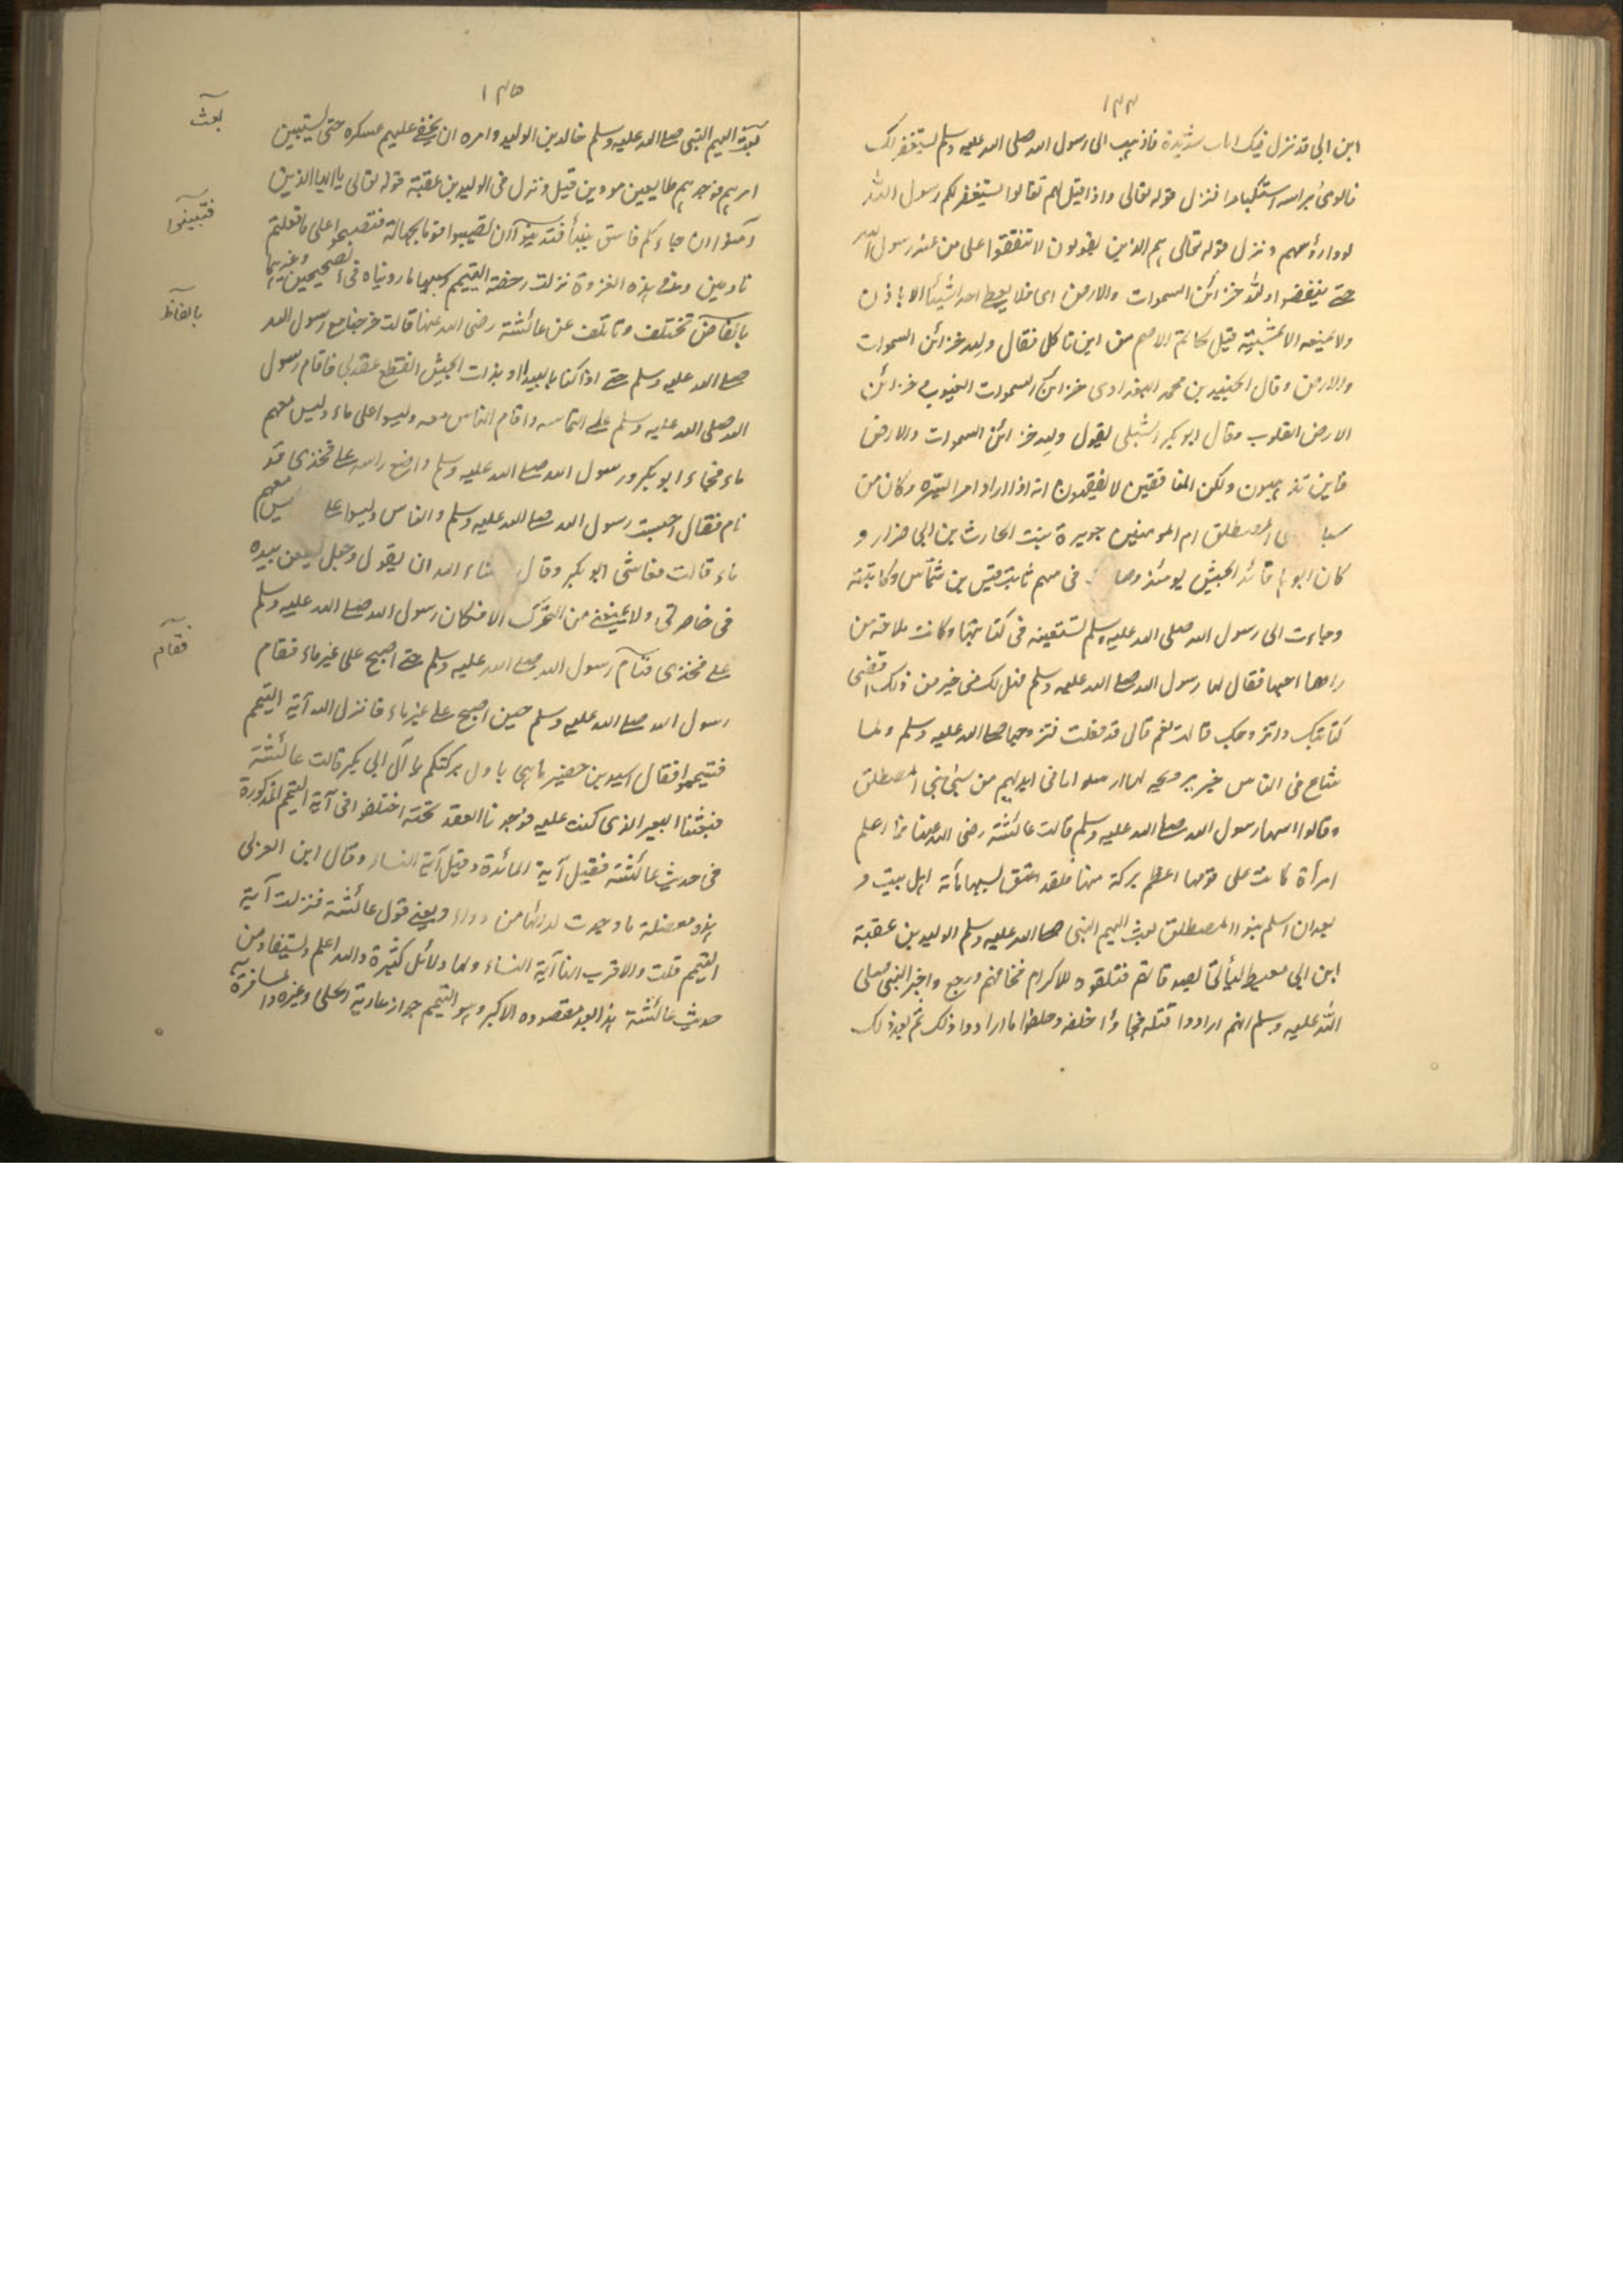 ١٣٤
ابن ابى قد نزل فيك ايات شديدة فاذهب الى رسول الله صلى الله عليه وسلم ليستغفر لك
فالوى براسه استكبارا فنزل قوله تعالى واذا قيل لهم تعالوا يستغفر لكم رسول الله
لووا رؤسهم ونزل قوله تعالى هم الذين يقولون لا تنفقوا على من عند رسول الله
حتى ينفضوا ولله خزائن السموات والارض اى فلا يعطى احد شيئا الا باذن
ولا يمنعه الا بمشيته قيل لحاتم الاصم من اين تاكل فقال ولله خزائن السموات
والارض وقال الجنيد بن محمد البغدادى خزائن السموات الغيوب وخزائن
الارض القلوب وقال ابو بكر الشبلى يقول ولله خزائن السموات والارض
فاين تذهبون ولكن المنافقين لا يفقهون انه اذا اراد امرا يسّره وكان من
سبا المصطلق ام المومنين جويرة بنت الحارث بن ابى ضرار و
كان ابوها قائد الجيش يومئذ فى سهم ثابت بن قيس بن شمّاس وكاتبته
وجاءت الى رسول الله صلى الله عليه وسلم تستعينه فى كتابتها وكانت ملاحة من
راها احبها فقال لها رسول الله صلى الله عليه وسلم فهل لك فى خير من ذلك اقضى
كتابتك واتزوجك قالت نعم قال قد فعلت فتزوجها صلى الله عليه وسلم ولما
شاع فى الناس خبر تزويجه لها ارسلوا ما فى ايديهم من سبى بنى المصطلق
وقالوا اصهار رسول الله صلى الله عليه وسلم قالت عائشة رضى الله عنها فما اعلم
امرأة كانت على قومها اعظم بركة منها فلقد اعتق بسببها مأته اهل بيت و
بعد ان اسلم بنو المصطلق بعث اليهم النبى صلى الله عليه وسلم الوليد بن عقبة
ابن ابى معيط ليأتى بصدقاتهم فتلقوه للاكرام فخافهم ورجع واخبر النبى صلى
الله عليه وسلم انهم ارادوا قتله فجاؤا خلفه وحلفوا ما ارادوا ذلك ثم بعد ذلك
١٣٥
بعث اليهم النبى صلى الله عليه وسلم خالد بن الوليد وامره ان يخفى عليهم عسكره حتى يستبين
امرهم فوجدهم طايعين مودين قيل ونزل فى الوليد بن عقبة قوله تعالى يا ايها الذين
آمنوا ان جاءكم فاسق بنبأ فتبينوا ان تصيبوا قوما بجهالة فتصبحوا على ما فعلتم
نادمين وفى هذه الغزوة نزلت رخصة التيمم وسببها ما رويناه فى الصحيحين وغيرهما
بالفاظ تختلف وتاتلف عن عائشة رضى الله عنها قالت خرجنا مع رسول الله
صلى الله عليه وسلم حتى اذا كنا بالبيداء او بذات الجيش انقطع عقد لى فاقام رسول
الله صلى الله عليه وسلم على التماسه واقام الناس معه وليسوا على ماء وليس معهم
ماء فجاء ابو بكر ورسول الله صلى الله عليه وسلم واضع راسه على فخذى قد
نام فقال احبست رسول الله صلى الله عليه وسلم والناس وليسوا على معهم
ماء قالت فعاتبنى ابو بكر وقال شاء الله ان يقول وجعل يطعن بيده
فى خاصرتى ولا يمنعنى من التحرك الا مكان رسول الله صلى الله عليه وسلم
على فخذى فنام رسول الله صلى الله عليه وسلم حتى اصبح على غير ماء فقام
رسول الله صلى الله عليه وسلم حين اصبح على غير ماء فانزل الله آية التيمم
فتيمموا فقال اسيد بن حضير ما هى باول بركتكم يا آل ابى بكر قالت عائشة
فبعثنا البعير الذى كنت عليه فوجدنا العقد تحته اختلفوا فى آية التيمم المذكورة
فى حديث عائشة فقيل آية المائدة وقيل آية النساء وقال ابن العربى
هذه معضلة ما وجدت لدائها من دواء ويعنى قول عائشة فنزلت آية
التيمم قلت والاقرب انها آية النساء ولها دلائل كثيرة والله اعلم ويستفاد من
حديث عائشة هذا بعد مقصوده الاكبر وهو التيمم جواز عارية الحلى وغيره والمسافرة به
بعث
فتبينوا
بالفاظ
فقام